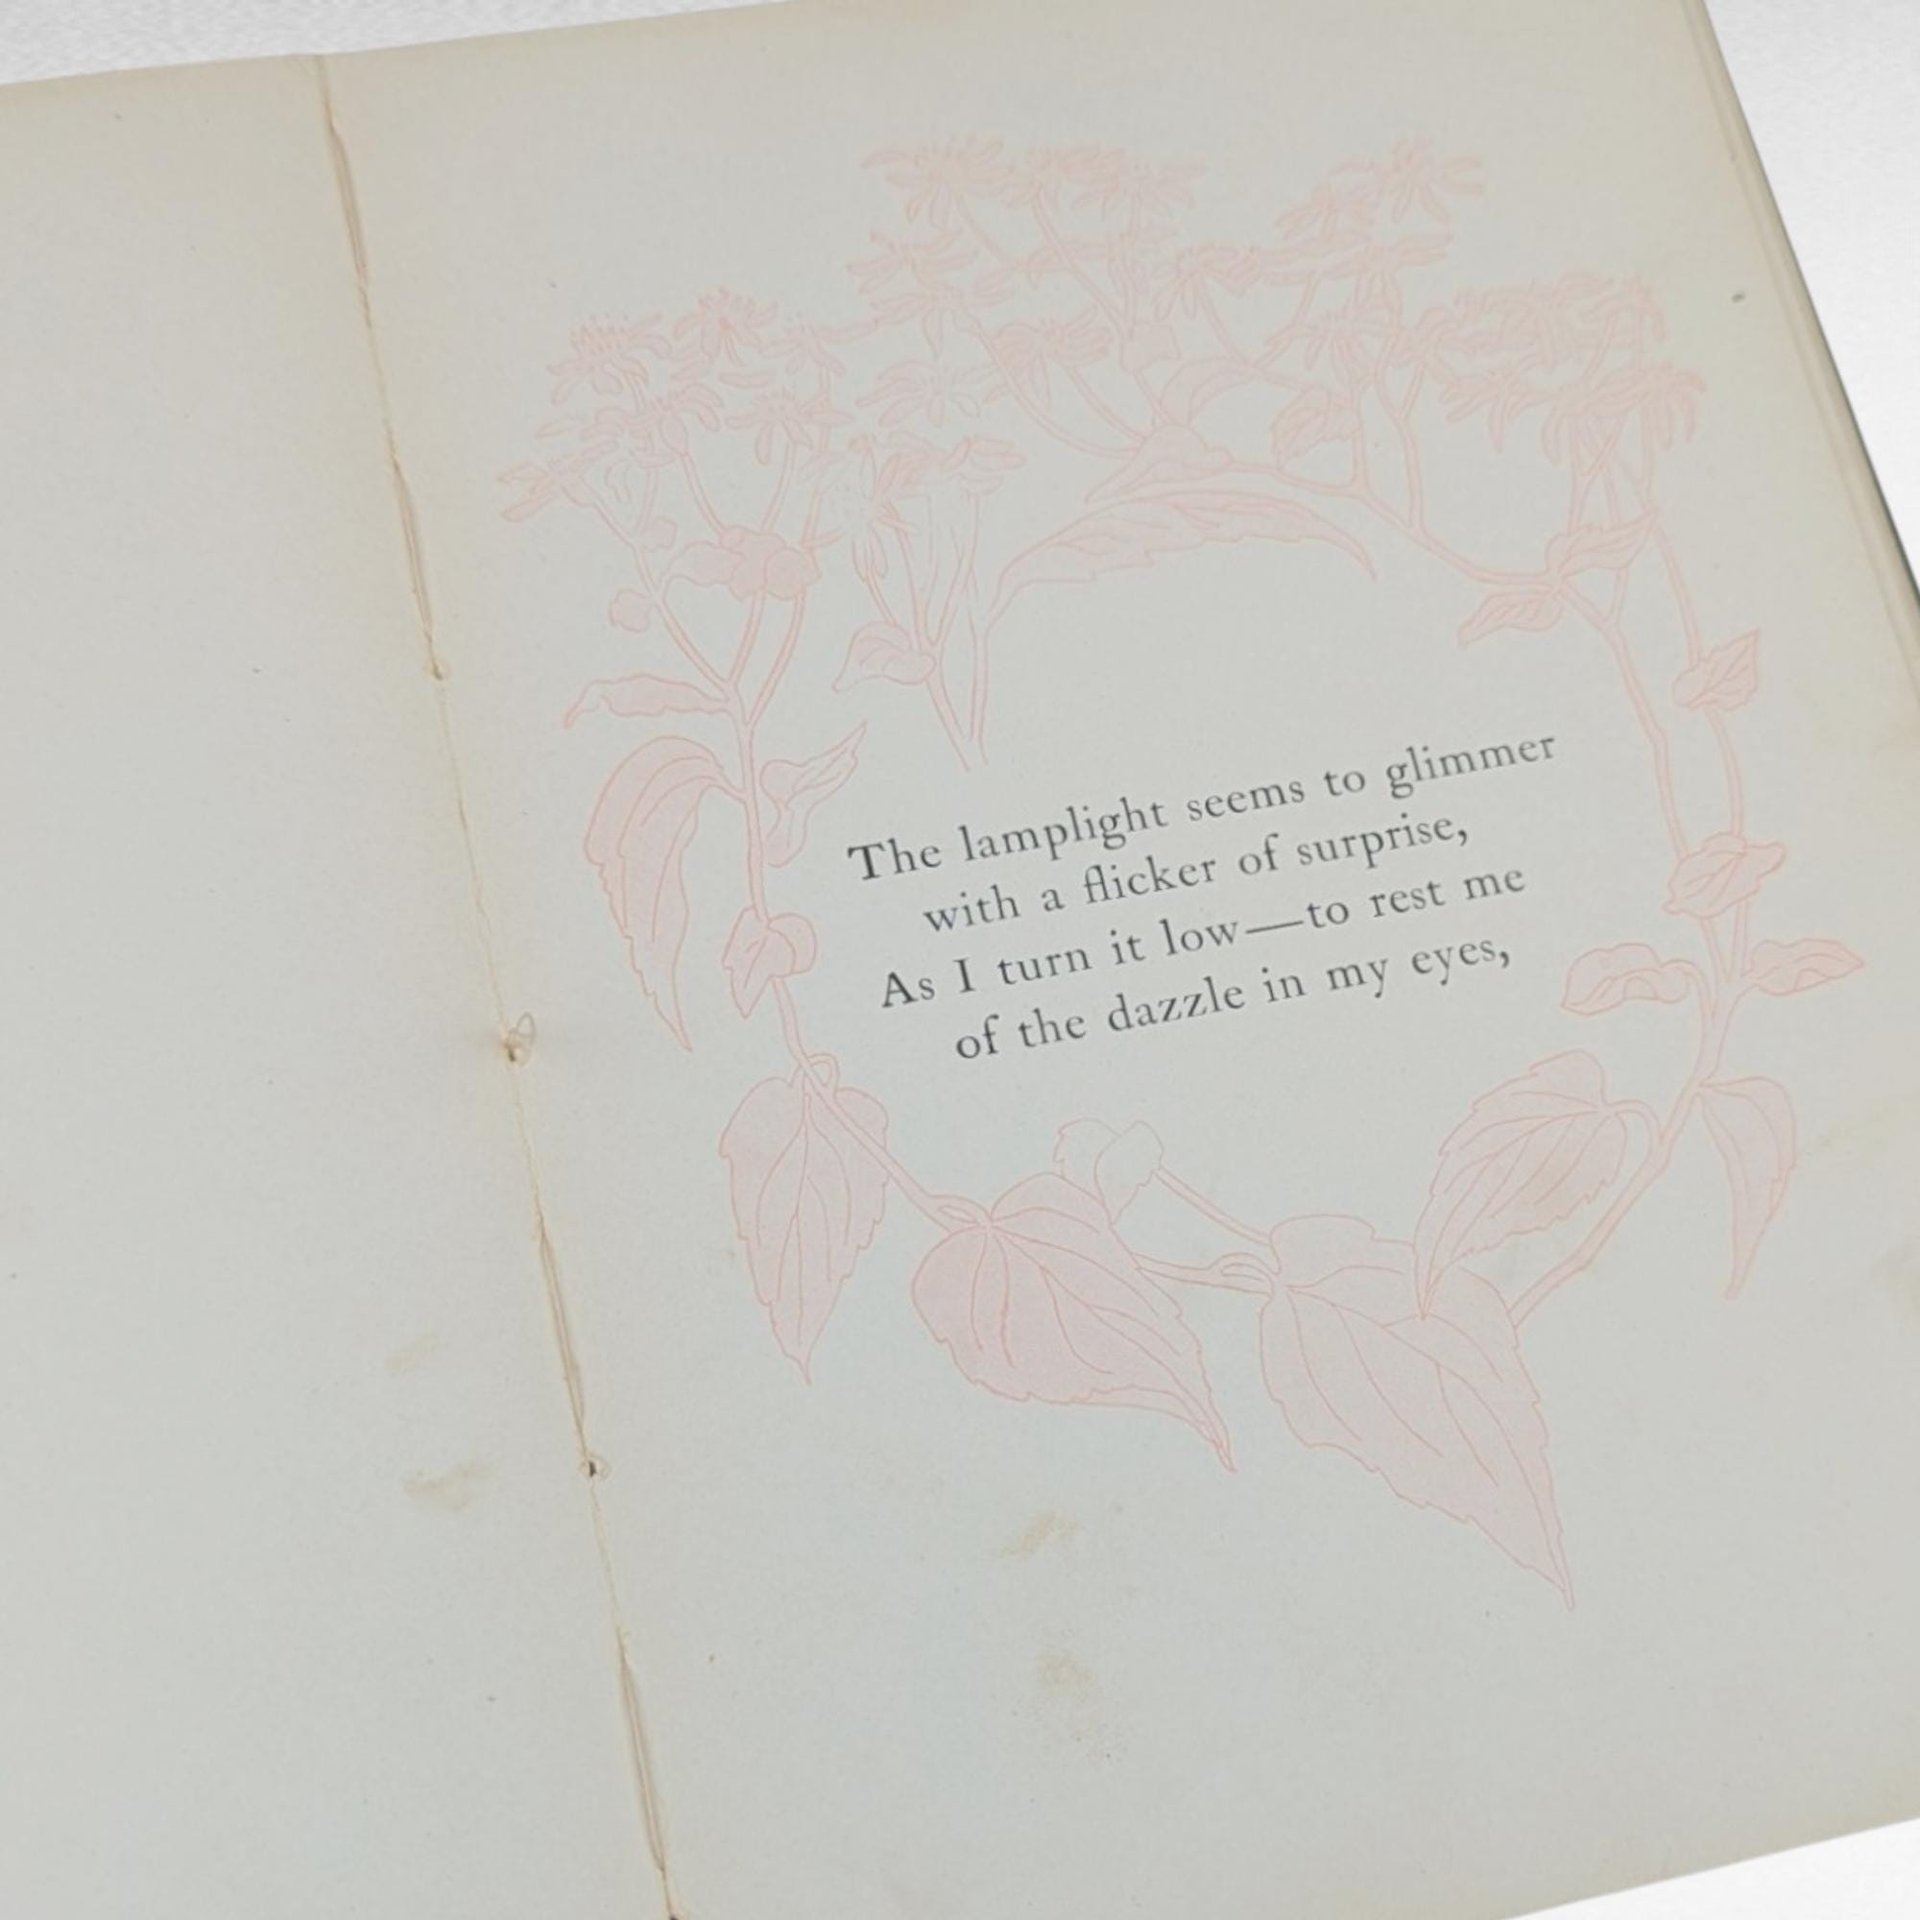 The lamplight seems to glimmer
with a flicker of surprise,
As I turn it low—to rest me
of the dazzle in my eyes,